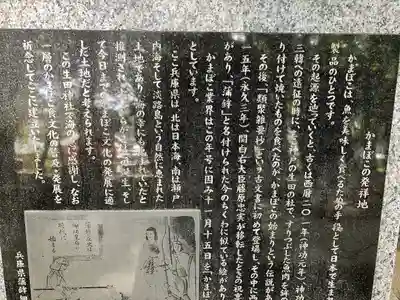 かまぼこの発祥地
かまぼこは、魚を美味しく食べるための手段として日本で生ま
製品のひとつです。
その起源を辿っていくと、古くは西暦二〇一年（神功元年）神功
三韓への遠征の時に、神戸の生田の社で、すりつぶした魚肉を鉾
り付けて焼いたものを食べたのがかまぼこの始まりという伝説があ
その後、「類聚雑要抄」という古文書に初めて登場し、その中に西
一五年（永久三年）、関白右大臣藤原忠実が移転したときの祝宴
があり、「蒲鉾」と名付けられた今のちくわに似ている絵があり
かまぼこ業界はこの年号に因み十一月十五日をかまぼ
としています。
ここ兵庫県は、北は日本海、南は瀬戸
内海そして淡路島という自然に恵まれた
土地であり、海の幸にも恵まれていたと
推測され
て今日まで かまぼこ文化の発展に適
した土地だと考えられます。
この生田神社で海の幸に感謝し、なお
一層のかまぼこ食文化の普及、発展を
祈念してここに建 いたしました。
兵庫県蒲鉾組